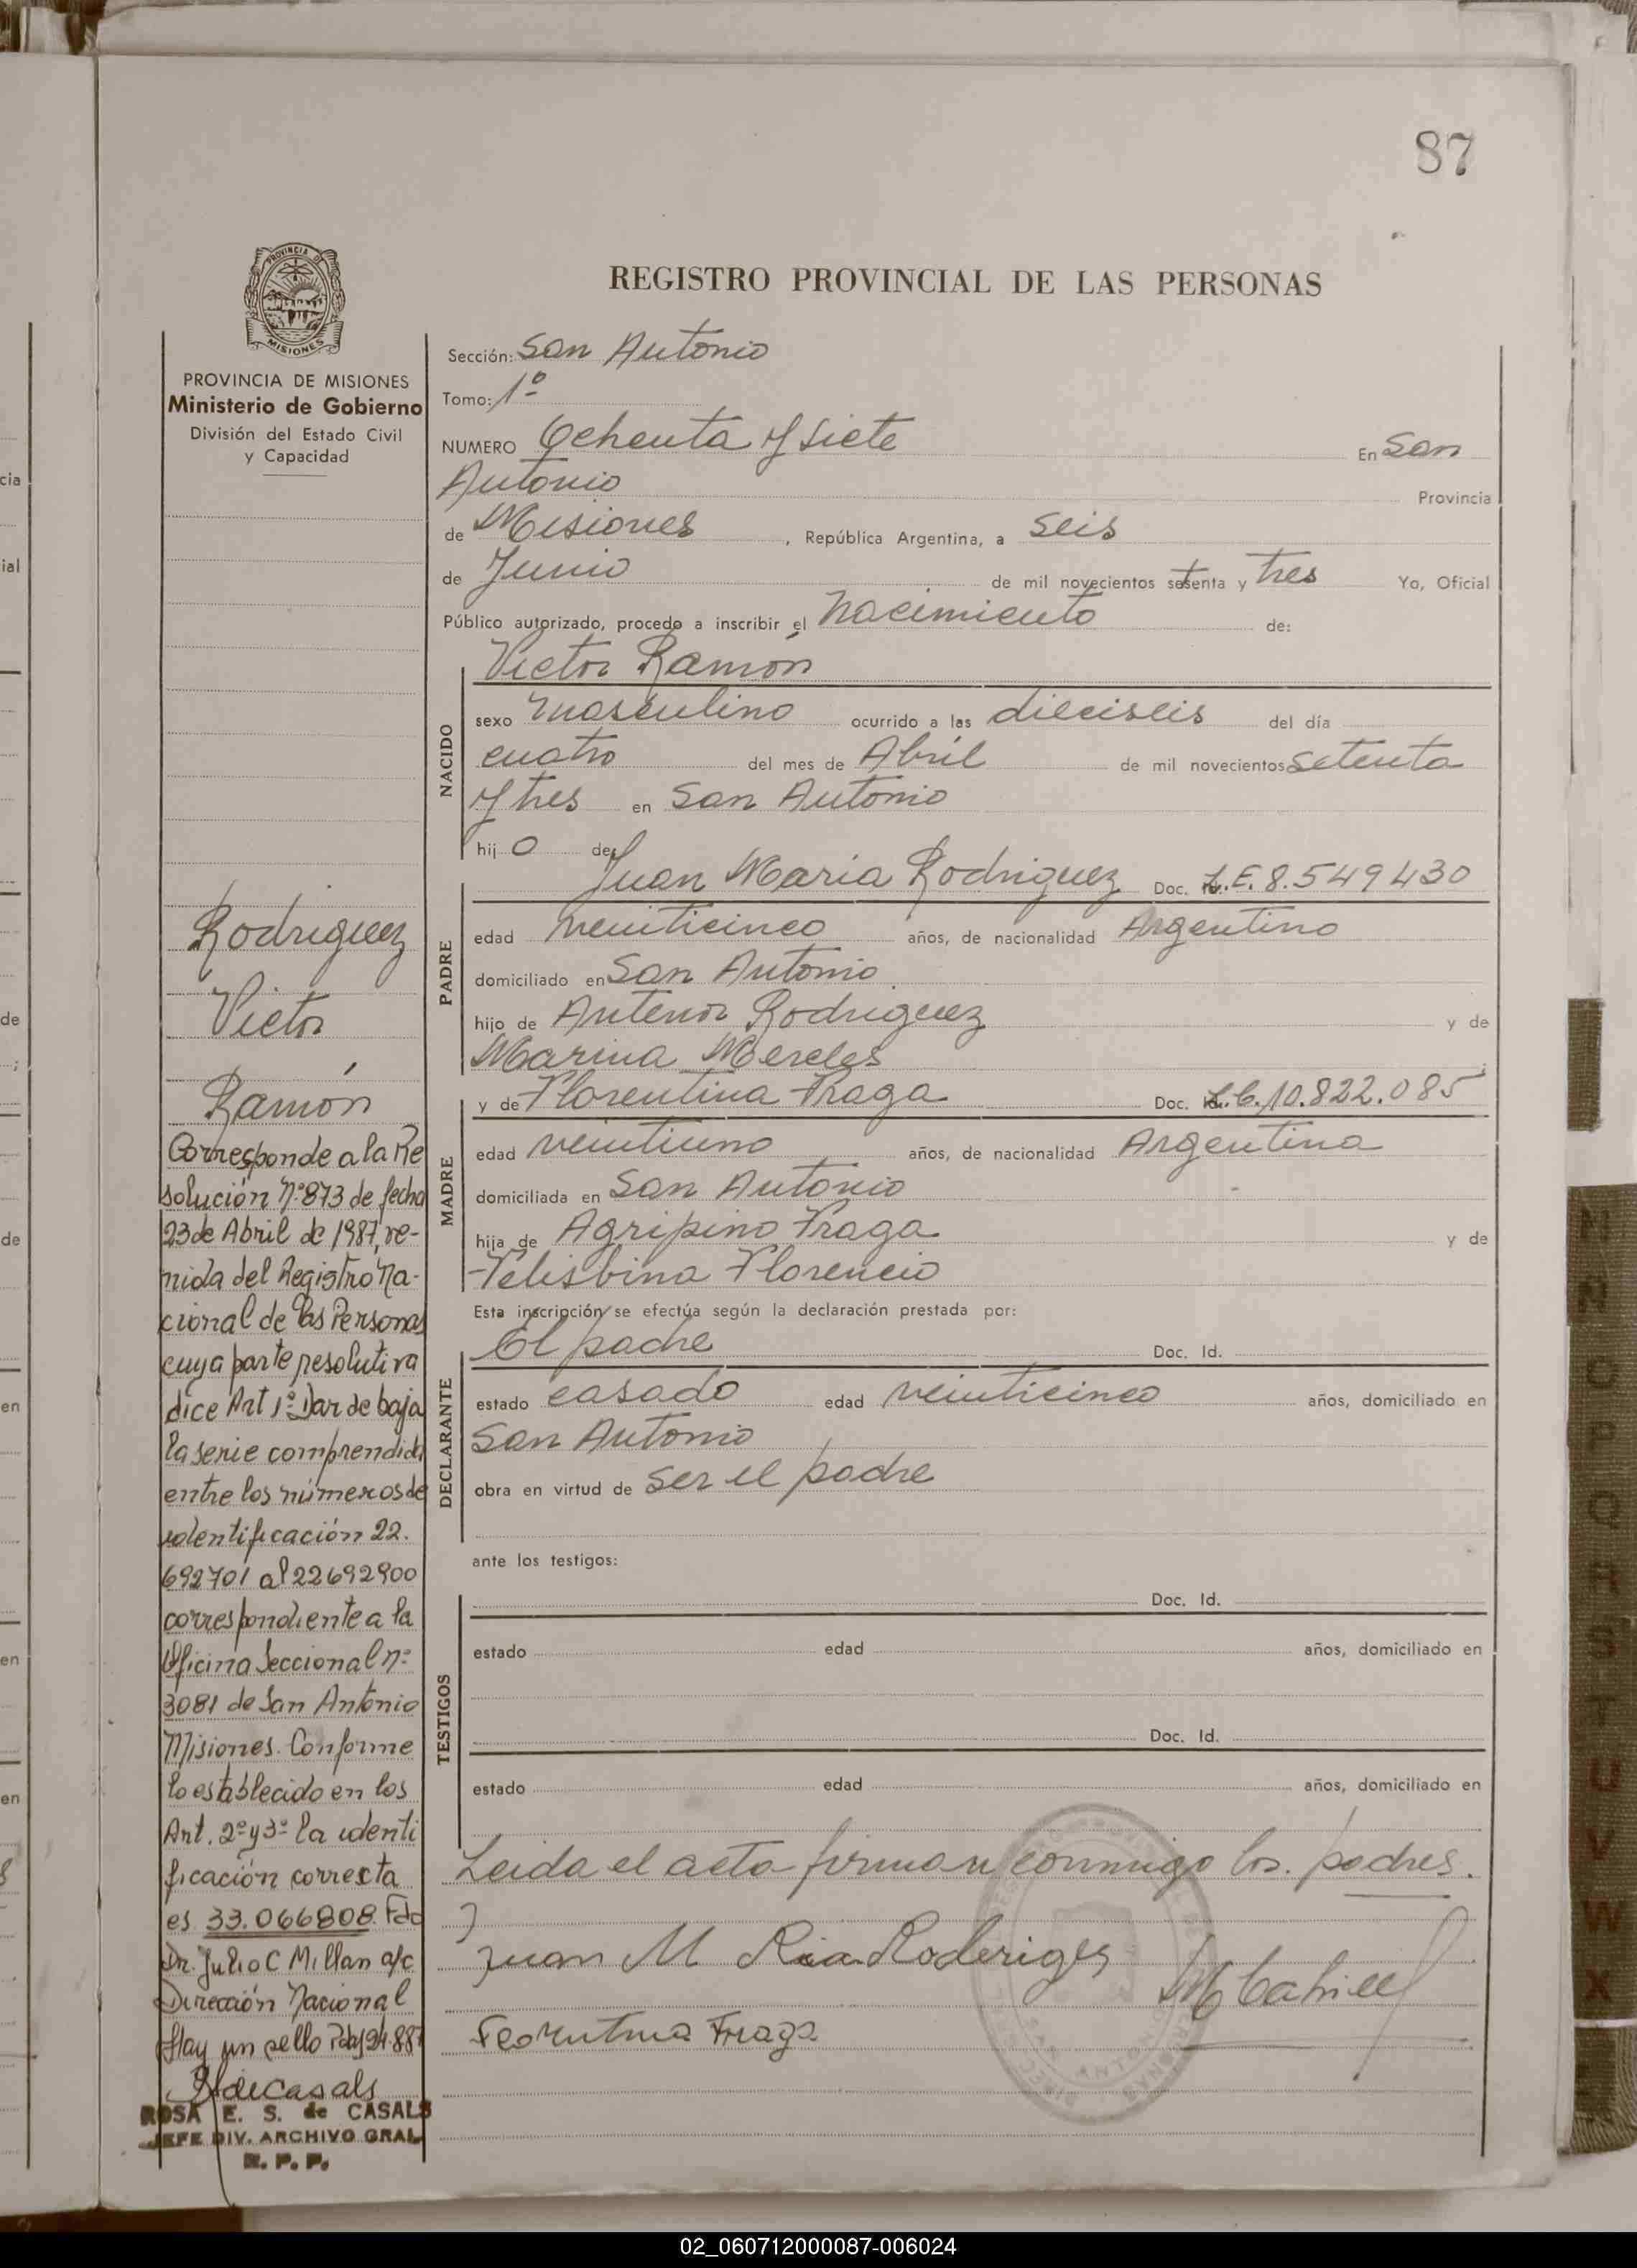 87
REGISTRO PROVINCIAL DE LAS PERSONAS
PROVINCIA DE MISIONES
MISIONES
PROVINCIA DE MISIONES
Ministerio de Gobierno
División del Estado Civil
y Capacidad
Rodriguez
Victor
Ramón
Corresponde a la Re
solución Nº 873 de fecha
23 de Abril de 1987, ve-
nida del Registro Na-
cional de las Personas
cuya parte resolutiva
dice Art 1º Dar de baja
la serie comprendida
entre los números de
identificación 22.
692701 al 22692900
correspondiente a la
Oficina Seccional nº
3081 de San Antonio
Misiones. Conforme
lo establecido en los
Art. 2º y 3º la identi
ficación correcta
es 33.066808. Fdo
Dr. Julio C Millan a/c
Dirección Nacional
Hay un sello
ROSA E. S. de CASALS
JEFE DIV. ARCHIVO GRAL
R. P. P.
Sección: San Antonio
Tomo: 1º
NUMERO Ochenta y siete En San
Antonio Provincia
de Misiones , República Argentina, a seis
de Junio de mil novecientos setenta y tres Yo, Oficial
Público autorizado, procedo a inscribir el nacimiento de:
Victor Ramón
NACIDO
sexo masculino ocurrido a las dieciseis del día
cuatro del mes de Abril de mil novecientos setenta
y tres en San Antonio
hij o de
PADRE
Juan Maria Rodriguez Doc. L.E. 8.549430
edad veinticinco años, de nacionalidad Argentino
domiciliado en San Antonio
hijo de Antenor Rodriguez y de
Marina Mereles ;
MADRE
y de Florentina Fraga Doc. L.C. 10.822.085
edad veintiuno años, de nacionalidad Argentina
domiciliada en San Antonio
hija de Agripino Fraga y de
Felisbina Florencio
Esta inscripción se efectúa según la declaración prestada por:
DECLARANTE
El padre Doc. Id.
estado casado edad veinticinco años, domiciliado en
San Antonio
obra en virtud de ser el padre
ante los testigos:
TESTIGOS
Doc. Id.
estado edad años, domiciliado en
Doc. Id.
estado edad años, domiciliado en
Leida el acta firman conmigo los padres.
Juan M Ria Roderiges
Feorutina Fraga
02_060712000087-006024